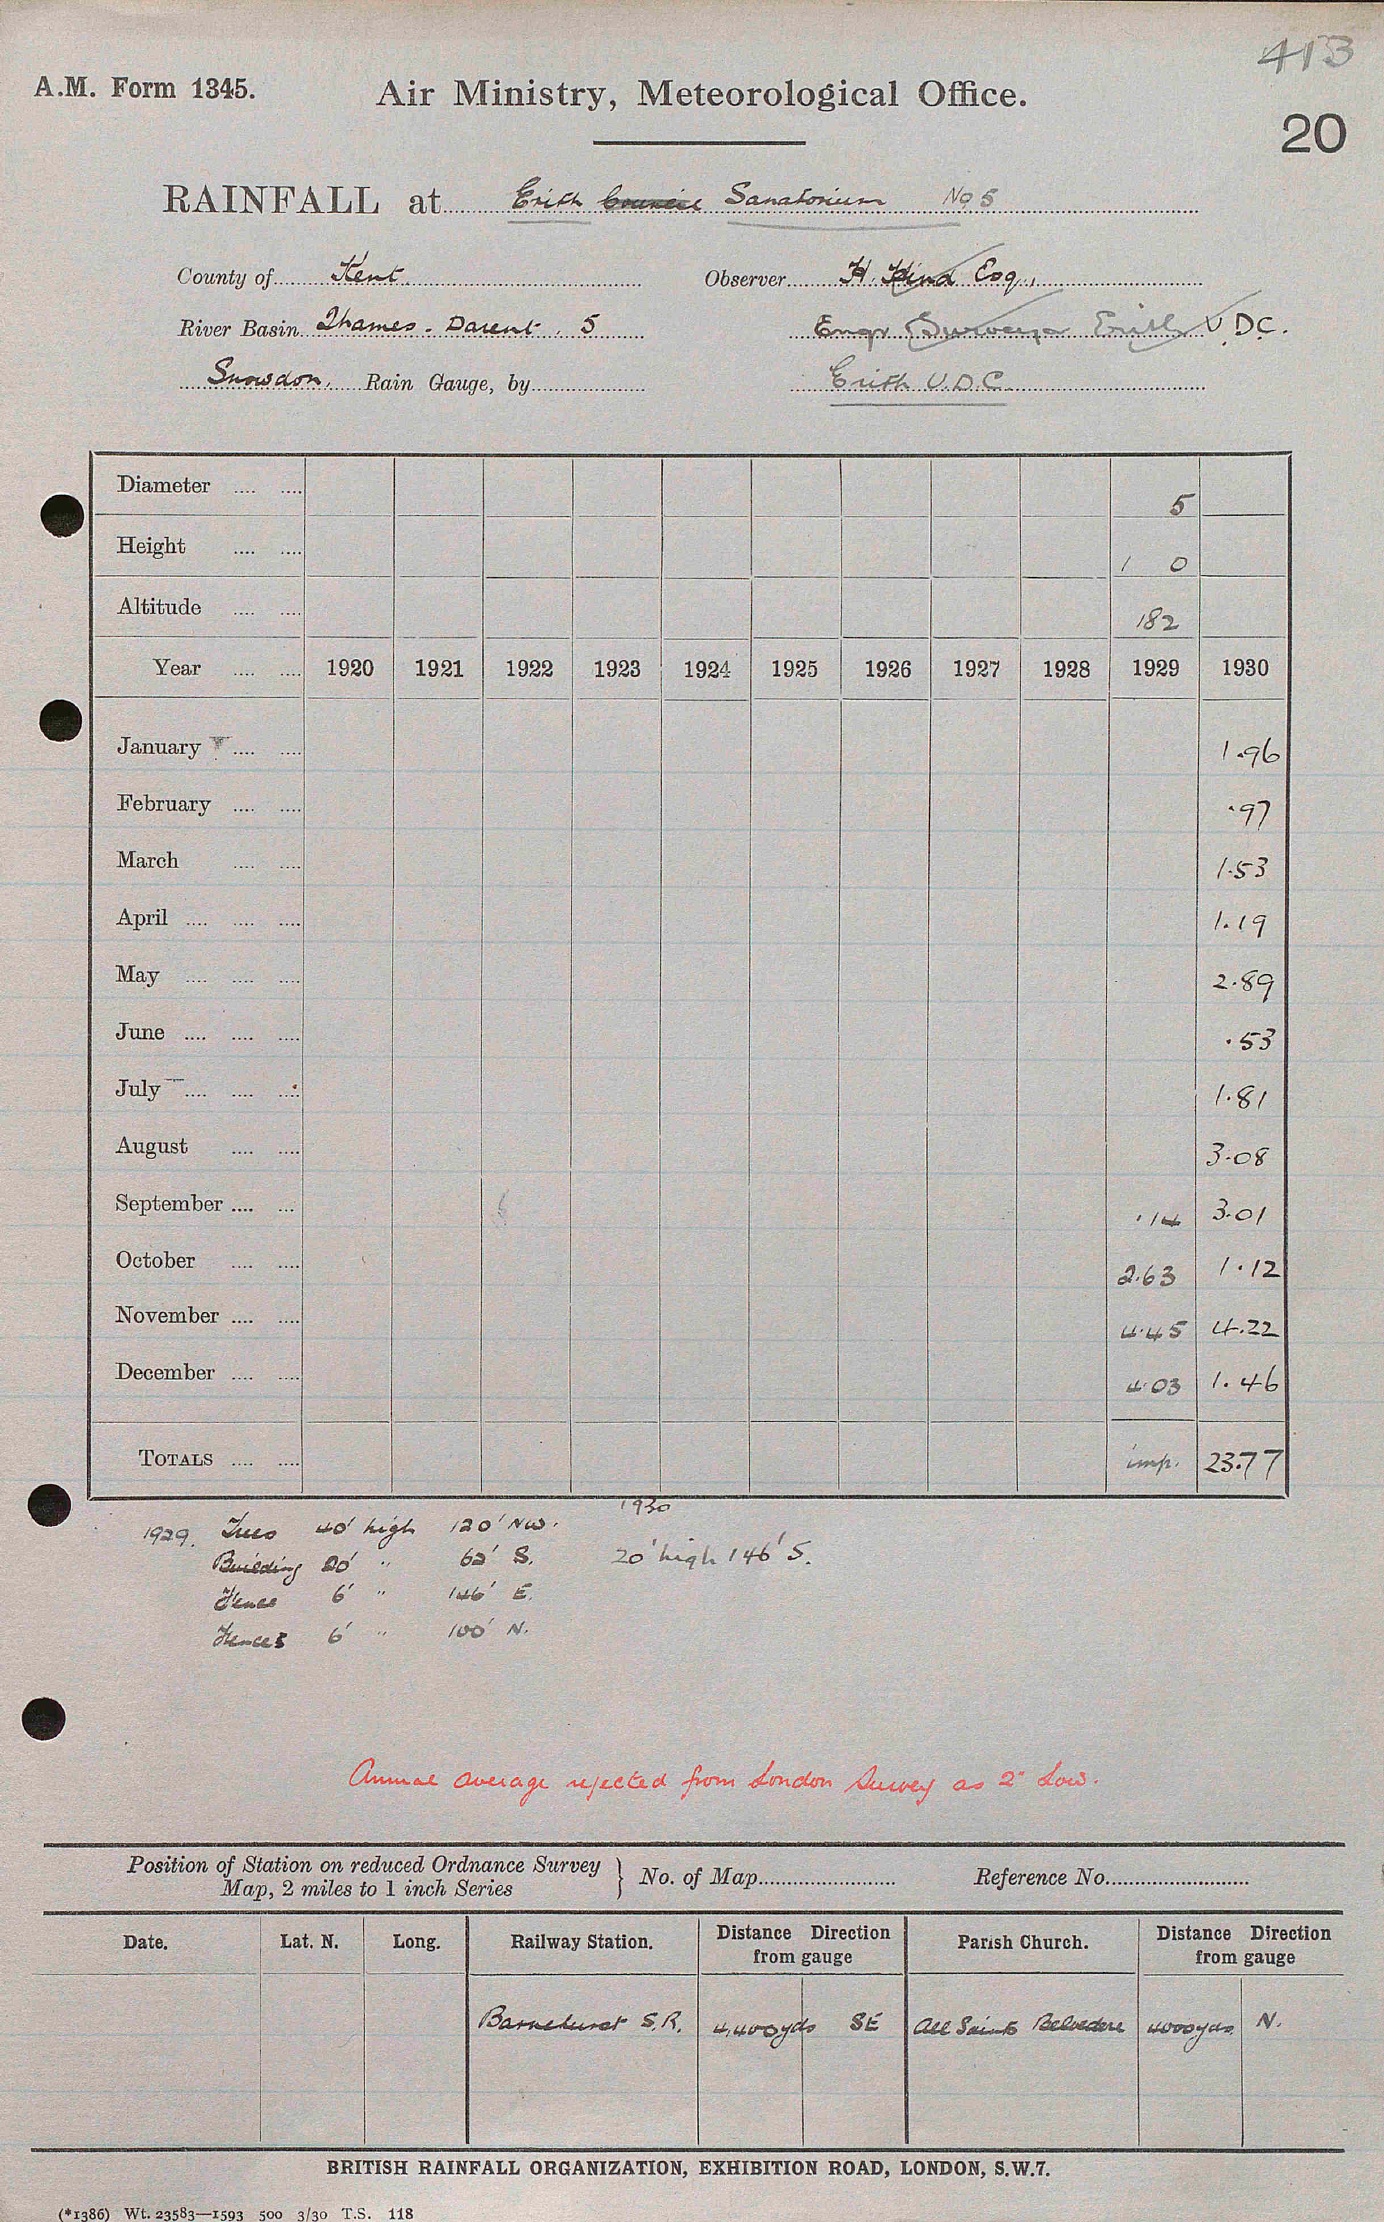 413
A.M. Form 1345.
Air Ministry, Meteorological Office.
20
RAINFALL at Erith Council Sanatorium No 5
County of Kent. Observer H. Hind Esq.,
River Basin Thames - Darent . 5 Engr. Surveyor Erith U.D.C.
Snowdon, Rain Gauge, by Erith U.D.C.
Diameter .... .... 5
Height .... .... 1 0
Altitude .... .... 182
Year .... .... 1920 1921 1922 1923 1924 1925 1926 1927 1928 1929 1930
January .... .... 1.96
February .... .... .97
March .... .... 1.53
April .... .... .... 1.19
May .... .... .... 2.89
June .... .... .... .53
July .... .... .... 1.81
August .... .... 3.08
September .... ... .14 3.01
October .... .... 2.63 1.12
November .... .... 4.45 4.22
December .... .... 4.03 1.46
TOTALS .... .... imp. 23.77
1930
1929. Trees 40' high 120' NW.
Building 20' " 62' S. 20' high 146' S.
Fence 6' " 146' E.
Fences 6' " 100' N.
Annual average rejected from London Survey as 2" Low.
Position of Station on reduced Ordnance Survey
Map, 2 miles to 1 inch Series } No. of Map Reference No.
Date. Lat. N. Long. Railway Station. Distance Direction from gauge Parish Church. Distance Direction from gauge
Barnehurst S.R. 4,400yds SE All Saints Belvedere 4000yds N.
BRITISH RAINFALL ORGANIZATION, EXHIBITION ROAD, LONDON, S.W.7.
(*1386) Wt. 23583—1593 500 3/30 T.S. 118